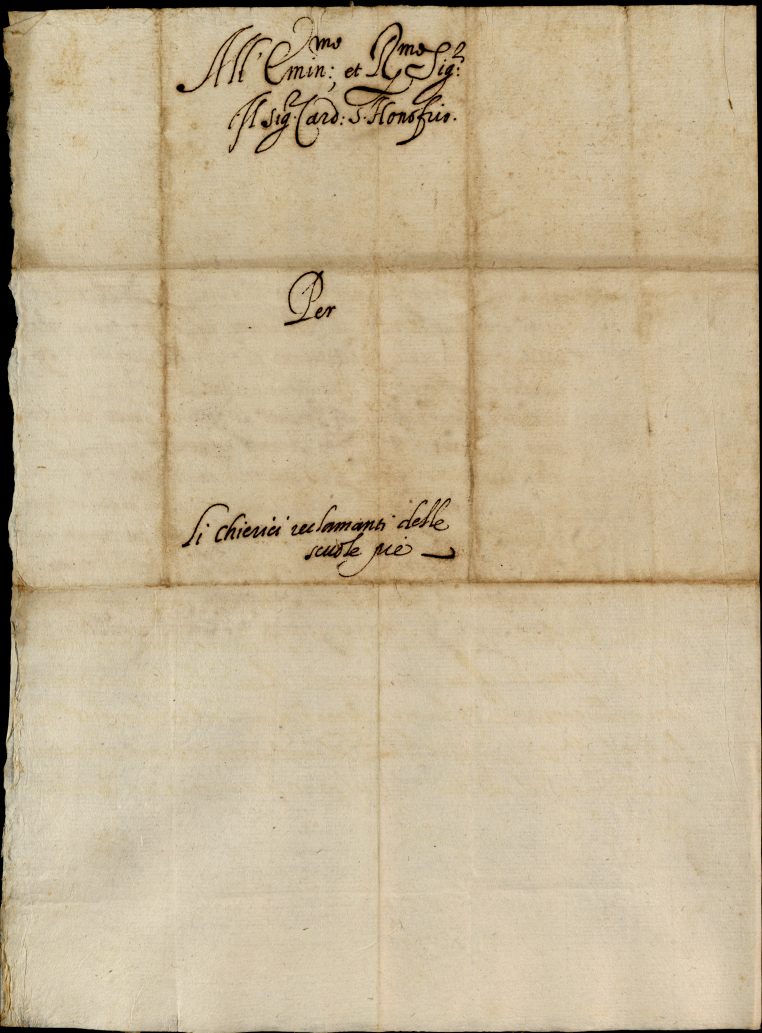 All' Emin:mo et Rmo Sigr:
Il Sigr. Card: S. Honofrio.
Per
Li Chierici reclamanti delle
scuole pie